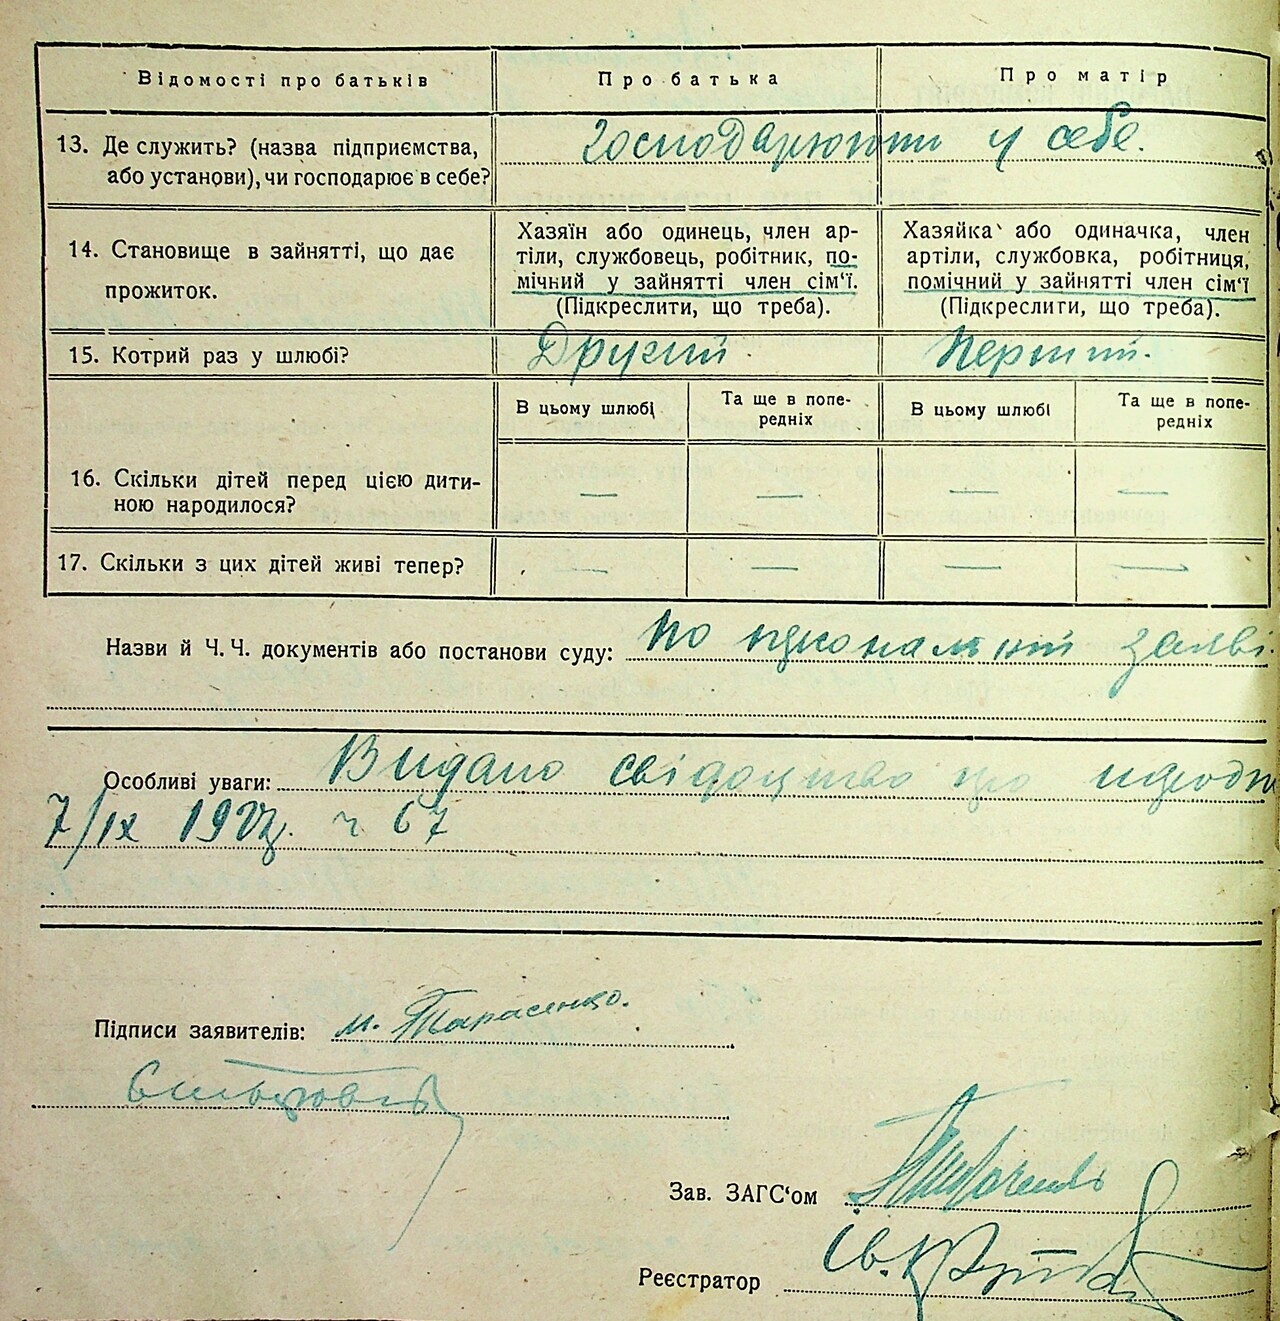 Відомості про батьків
Про батька
Про матір
13. Де служить? (назва підприємства,
або установи), чи господарює в себе?
Господарюють у себе.
14. Становище в зайнятті, що дає
прожиток.
Хазяїн або одинець, член ар-
тіли, службовець, робітник, по-
мічний у зайнятті член сім‘ї.
(Підкреслити, що треба).
Хазяйка або одиначка, член
артіли, службовка, робітниця,
помічний у зайнятті член сім‘ї
(Підкреслити, що треба).
15. Котрий раз у шлюбі?
Другий.
Перший.
В цьому шлюбі
Та ще в попе-
редніх
В цьому шлюбі
Та ще в попе-
редніх
16. Скільки дітей перед цією дити-
ною народилося?
— — — —
17. Скільки з цих дітей живі тепер?
— — — —
Назви й Ч. Ч. документів або постанови суду: по заяві.
Особливі уваги: Видано свідоцтво про
7/IX ч 67
Підписи заявителів: М. Тарасенко.
Зав. ЗАГС‘ом
Реєстратор